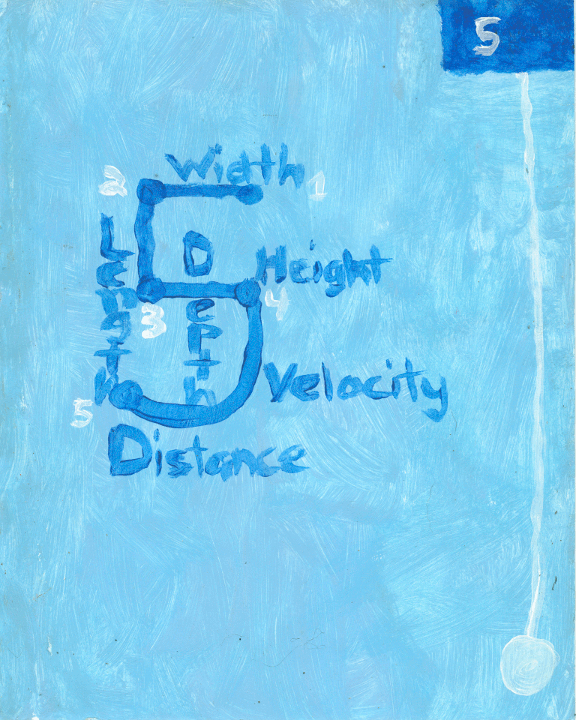 5
Width
2
1
Length
Depth
Height
3
4
Velocity
5
Distance